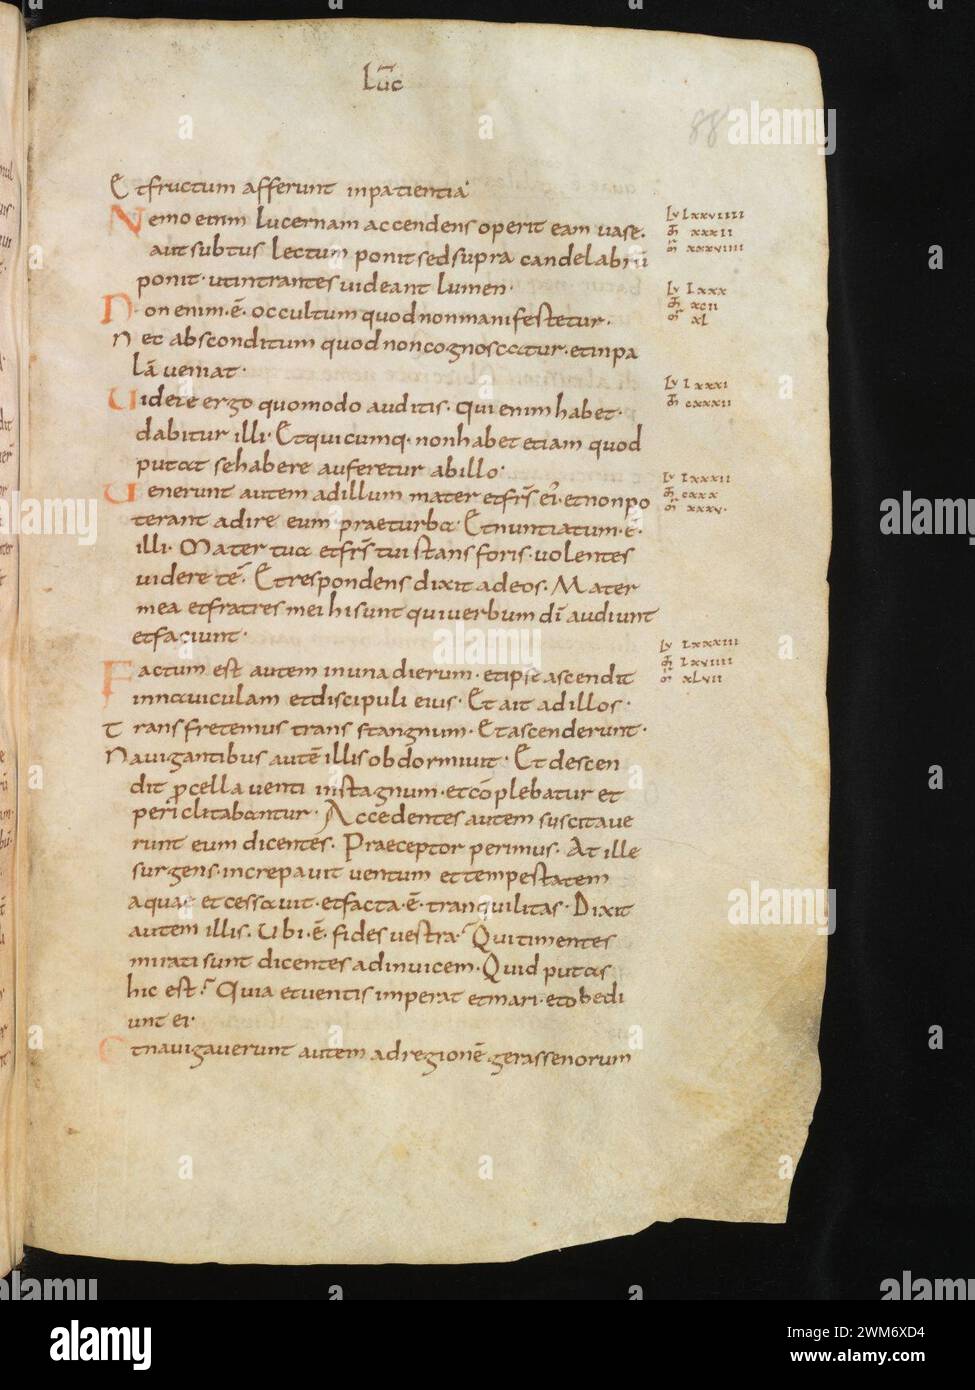 Lūc
88
Et fructum afferunt inpatientia
Nemo enim lucernam accendens operit eam uase.
aut subtus lectum ponit sed supra candelabrū
ponit· ut intrantes uideant lumen·
Non enim·ē· occultum quod non manifestetur·
Nec absconditum quod non cognoscatur· et inpa
lā ueniat·
Uidete ergo quomodo auditis· Qui enim habet·
dabitur illi· Et quicumq· non habet etiam quod
putat se habere auferetur abillo·
Uenerunt autem adillum mater et frs̄ ei· et non po
terant adire eum praeturba· Et nuntiatum·ē·
illi· Mater tua et frs̄ tui stans foris· uolentes
uidere tē· Et respondens dixit adeos· Mater
mea et fratres mei hi sunt qui uerbum dī audiunt
et faciunt·
Factum est autem inuna dierum· et ipse ascendit
innauiculam et discipuli eius· Et ait adillos·
Transfretemus trans stangnum· Et ascenderunt·
Nauigantibus autē illis obdormiuit· Et descen
dit pcella uenti instagnum· et cōplebatur et
periclitabantur· Accedentes autem suscitaue
runt eum dicentes· Praeceptor perimus· At ille
surgens· increpauit uentum et tempestatem
aquae et cessauit· et facta·ē· tranquilitas· Dixit
autem illis· Ubi·ē· fides uestra· Qui timentes
mirati sunt dicentes adinuicem· Quid putas
hic est· Quia et uentis imperat et mari· et obedi
unt ei·
Et nauigauerunt autem adregionē gerassenorum
Lv lxxviiii
m̄ xxxii
m̄ xxxviiii
Lv lxxx
m̄ xcii
m̄ xl
Lv lxxxi
m̄ cxxxii
Lv lxxxii
m̄ cxxx
m̄ xxxv·
Lv lxxxiii
m̄ lxviiii
m̄ xlvii
alamy
alamy
Image ID: 2WM6XD4
www.alamy.com